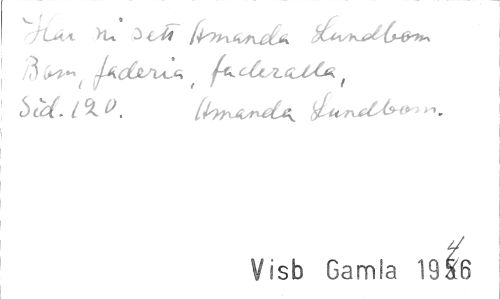 Har ni sett Amanda Lundbom
Bom, faderia, faderalla,
Sid. 120. Amanda Lundbom.
Visb Gamla 1946